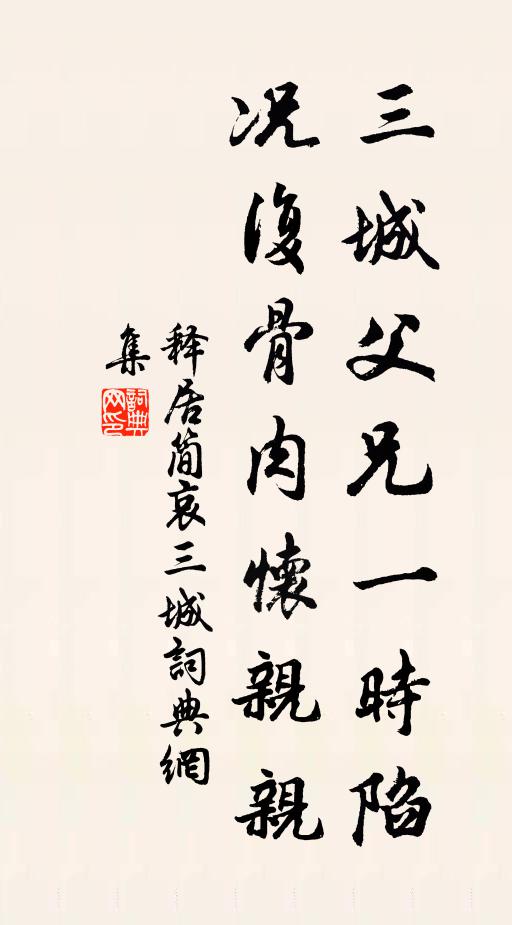 三城父兄一時陷
况復骨肉懷親親
释居簡哀三城詞典網
集
詞典
网印